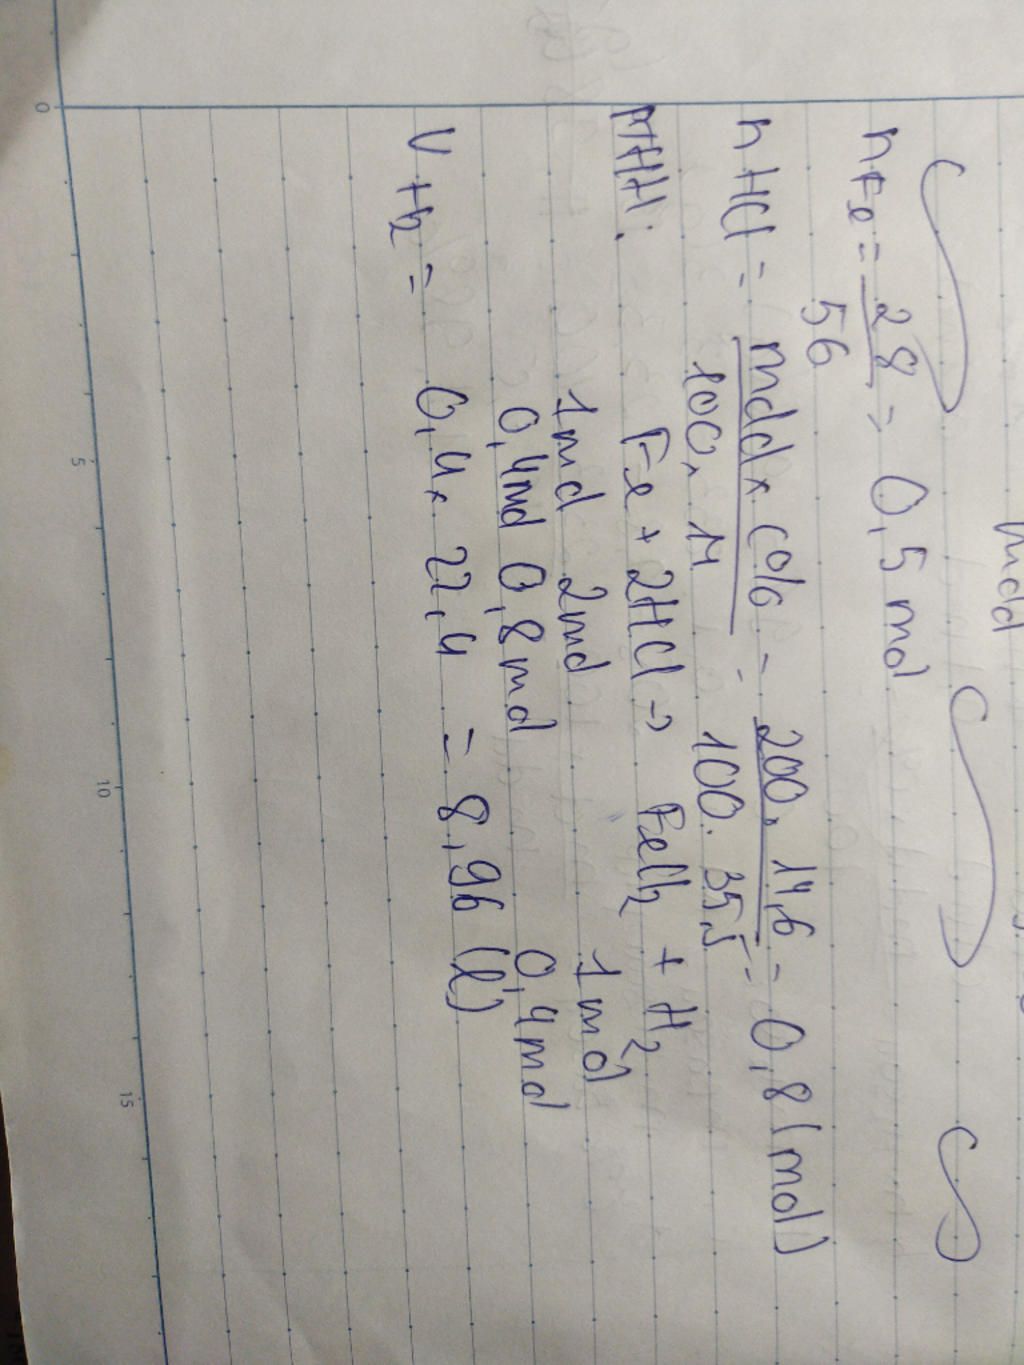 mdd
nFe = 28/56 = 0,5 mol
nHCl = mdd × C%/100. M = 200. 14,6/100. 35,5 = 0,8 (mol)
PTHH: Fe + 2HCl → FeCl2 + H2
1mol 2mol 1mol
0,4mol 0,8mol 0,4mol
V H2 = 0,4 × 22,4 = 8,96 (l)
0 5 10 15